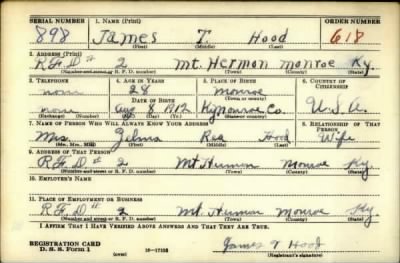 SERIAL NUMBER 1. NAME (Print) ORDER NUMBER
898 James T. Hood 618
(First) (Middle) (Last)
2. ADDRESS (Print)
R.F.D # 2 Mt. Hermon Monroe Ky.
(Number and street or R. F. D. number) (Town) (County) (State)
3. TELEPHONE 4. AGE IN YEARS 5. PLACE OF BIRTH 6. COUNTRY OF CITIZENSHIP
none 28 Monroe
DATE OF BIRTH (Town or county)
none Aug 8 1912 Ky Monroe Co. U.S.A
(Exchange) (Number) (Mo.) (Day) (Yr.) (State or country)
7. NAME OF PERSON WHO WILL ALWAYS KNOW YOUR ADDRESS 8. RELATIONSHIP OF THAT PERSON
Mrs. Zelma Rea Hood Wife
(Mr., Mrs., Miss) (First) (Middle) (Last)
9. ADDRESS OF THAT PERSON
R.F.D # 2 Mt Hermon Monroe Ky.
(Number and street or R. F. D. number) (Town) (County) (State)
10. EMPLOYER'S NAME
11. PLACE OF EMPLOYMENT OR BUSINESS
R.F.D # 2 Mt. Hermon Monroe Ky.
(Number and street or R. F. D. number) (Town) (County) (State)
I AFFIRM THAT I HAVE VERIFIED ABOVE ANSWERS AND THAT THEY ARE TRUE.
REGISTRATION CARD
D. S. S. Form 1 (over) 16-17105 James T Hood
(Registrant's signature)